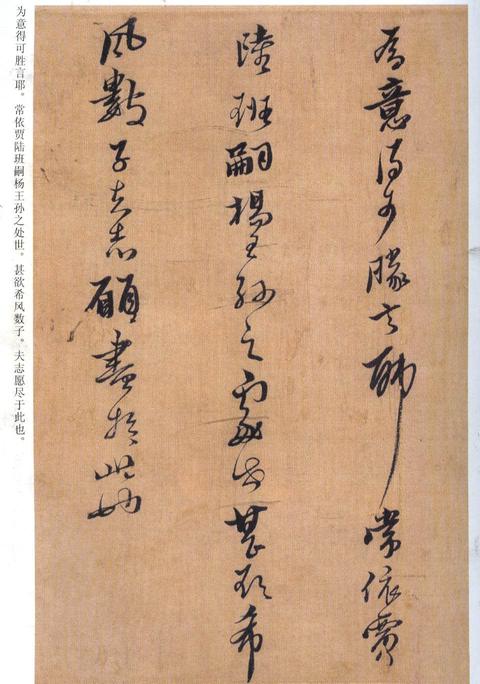 为意得可胜言耶。常依贾陆班嗣杨王孙之处世。甚欲希风数子。夫志愿尽于此也。
為意得可勝言耶常依賈
陸班嗣楊王孫之處世甚欲希
風數子夫志願盡於此也